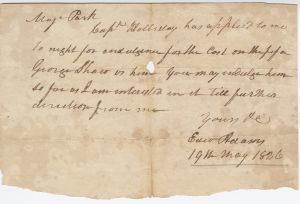 Majr Park
Capt. Holliday has applied to me
to night for indulgence for the Cost on the fifa
George Shaw vs him You may indulge him
so far as I am interested in it till further
direction from me
Yours &c
Edw Adams
19th May 1826